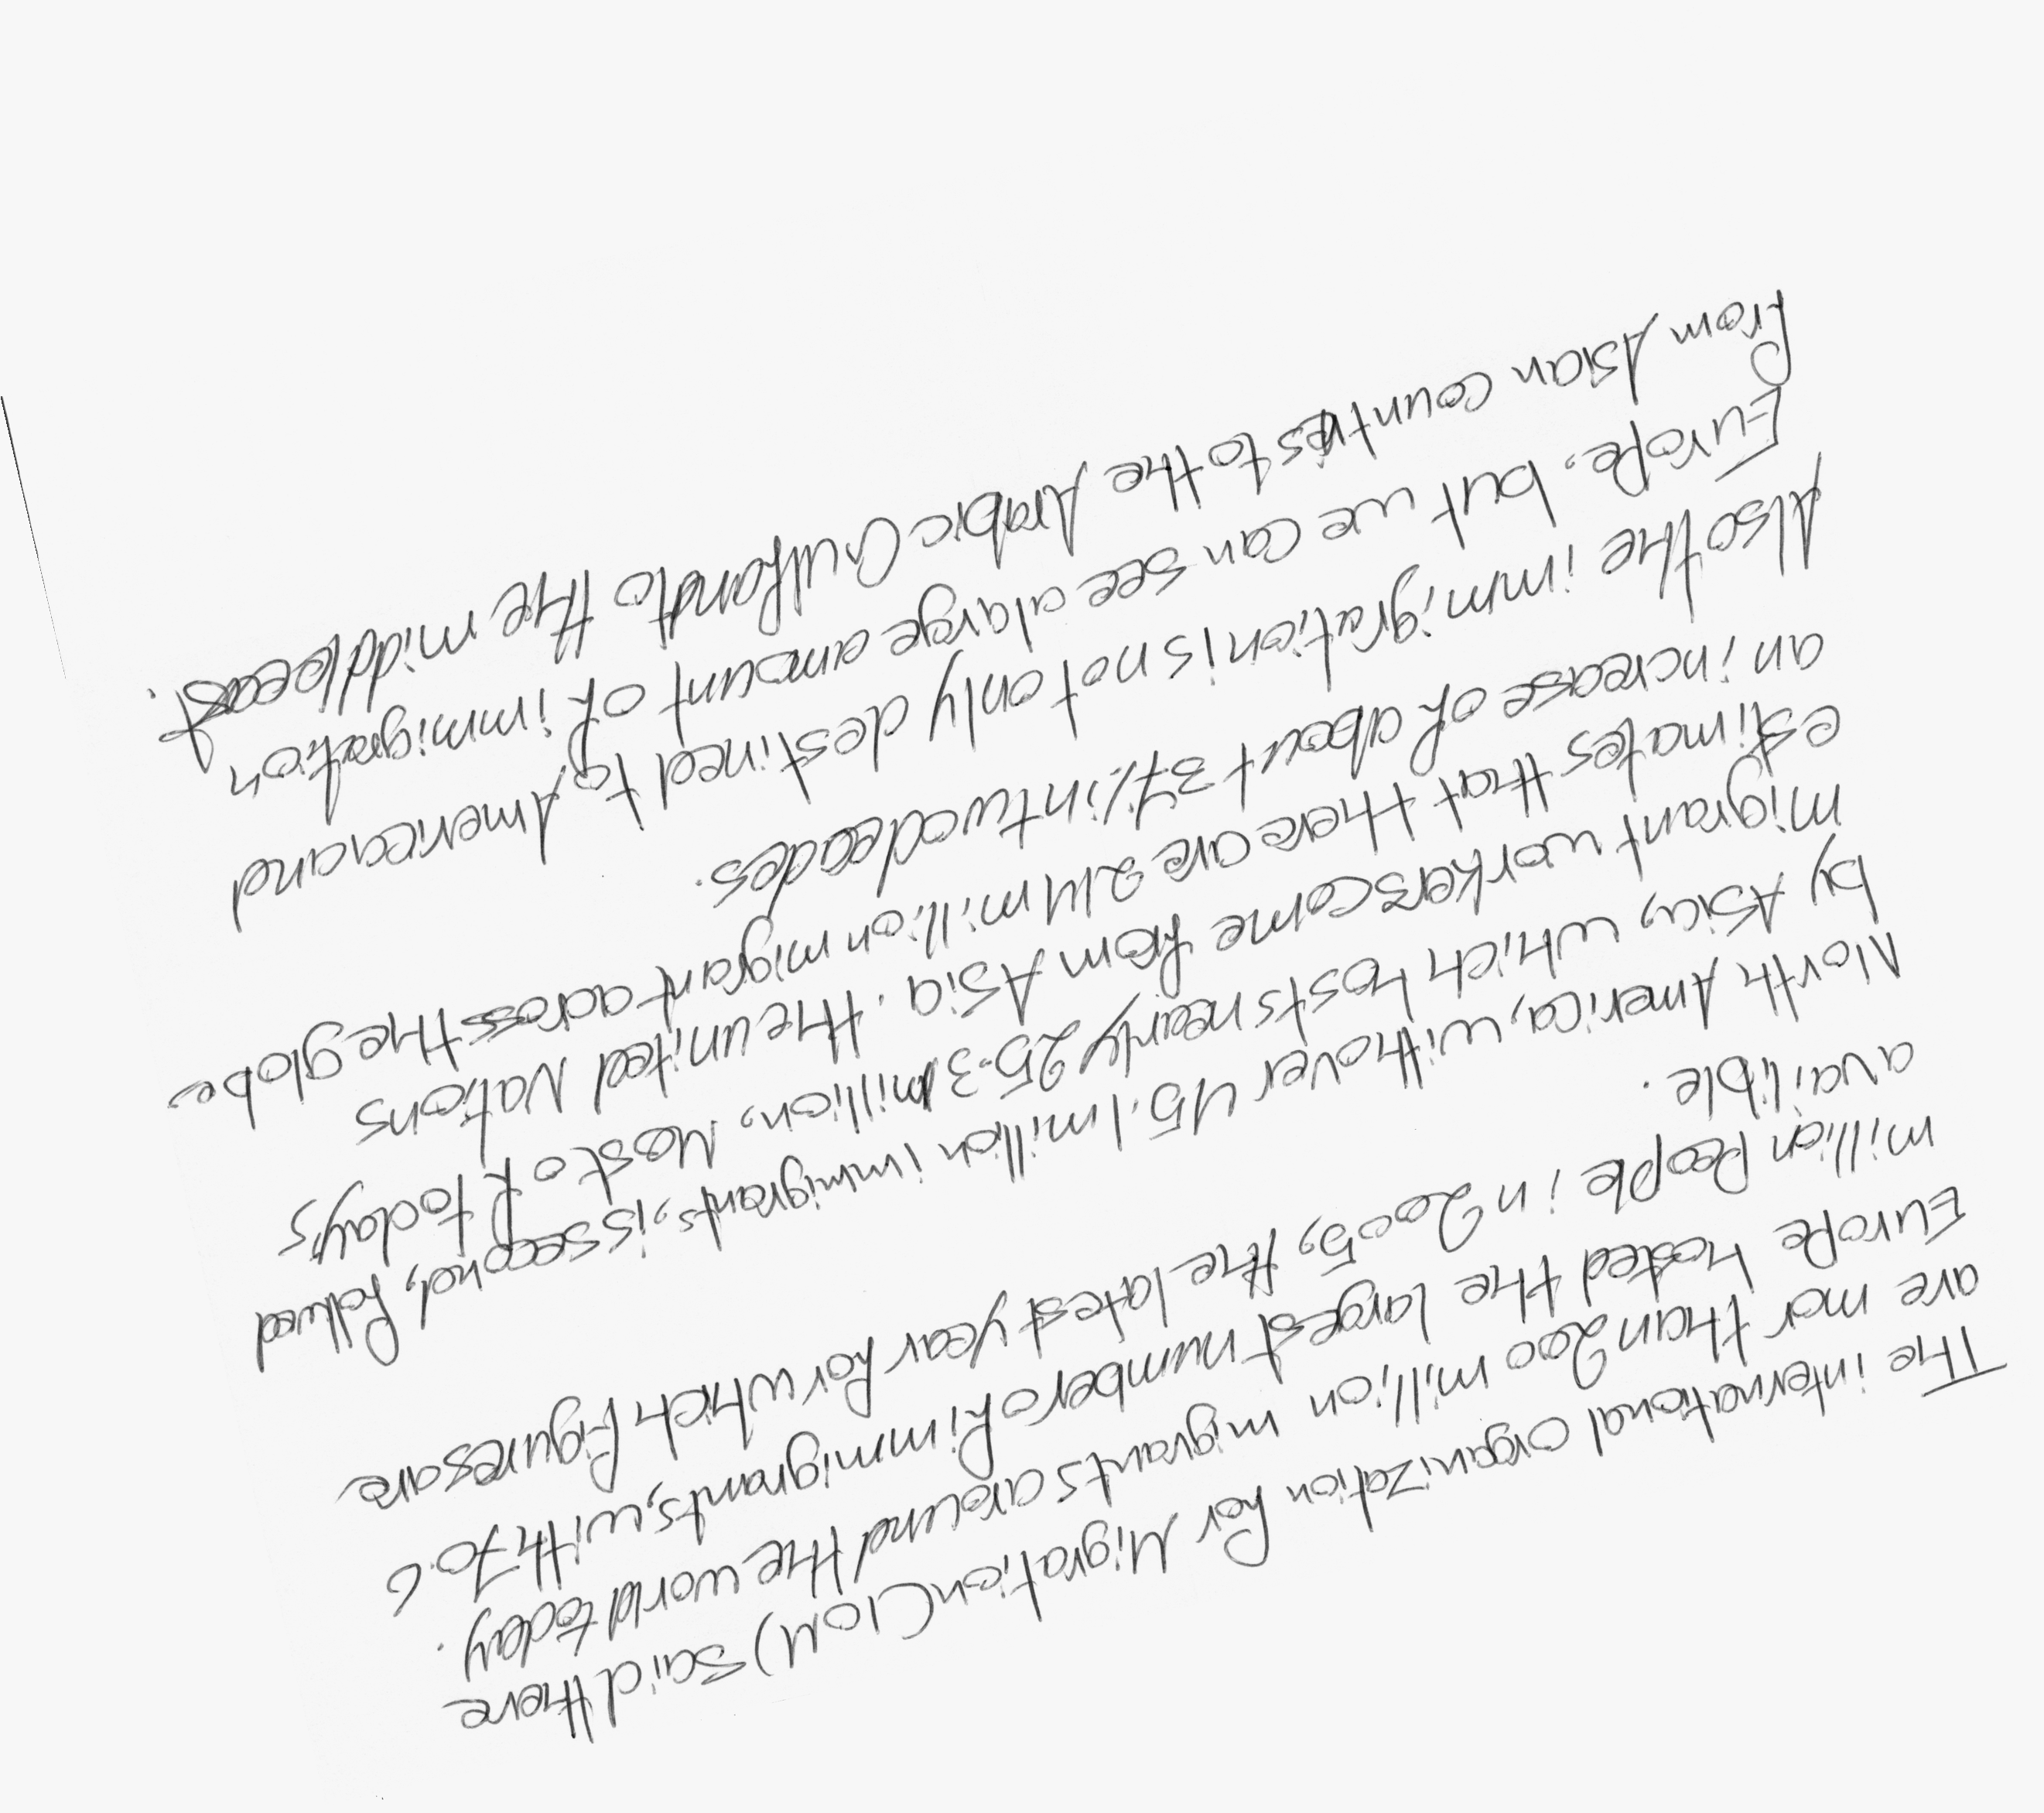 The international organization for Migration (IOM) said there
are mor than 200 million migrants around the world today.
Europe hosted the largest number of immigrants, with 70.6
million People in 2005, the latest year for which figures are
availible.
North America, with over 45.1 million immigrants, is second, follwed
by Asia, which hosts nearly 25.3 million, Most of today's
migrant workers come from Asia. the united Nations
estimates that there are 214 million migrant across the globe
an increase of about 37% in two decades.
Also the immigration is not only destined to America and
Europe. but we can see a large amount of immigration
from Asian countries to the Arabic Gulf and to the middle east.